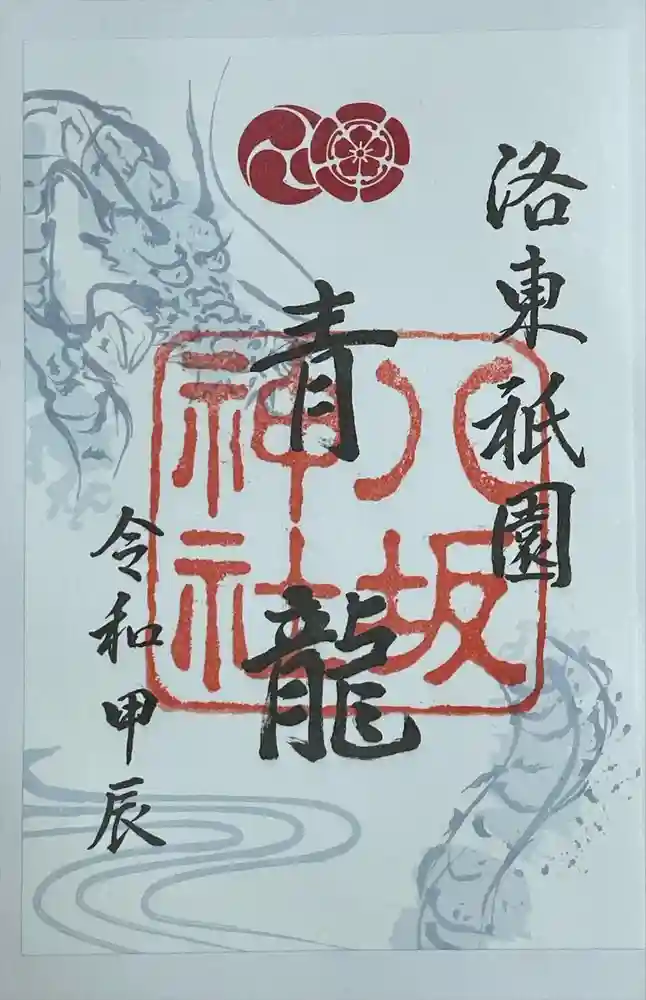 洛東祇園
青龍
令和甲辰
八坂
神社